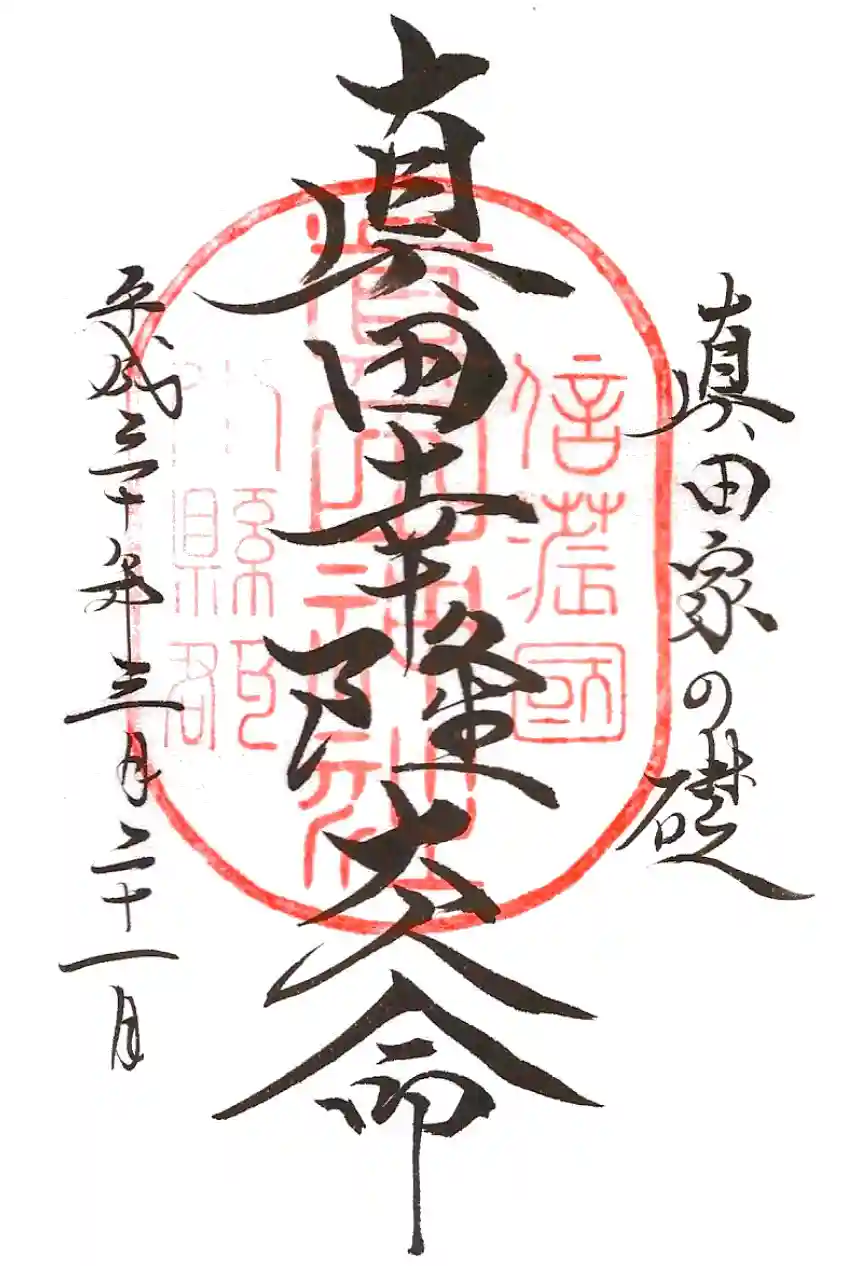 真田家の礎
真田幸隆大人命
平成三十年三月二十一日
信濃國
小縣郡